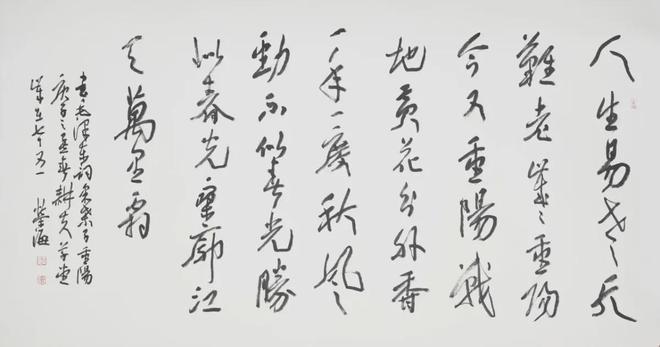 人生易老天
難老歲々重陽
今又重陽戰
地黄花分外香
一年一度秋風
勁不似春光勝
似春光寥廓江
天萬里霜
書毛澤東詞采桑子重陽
庚子之孟春耕夫草堂
歲在七十又一 海